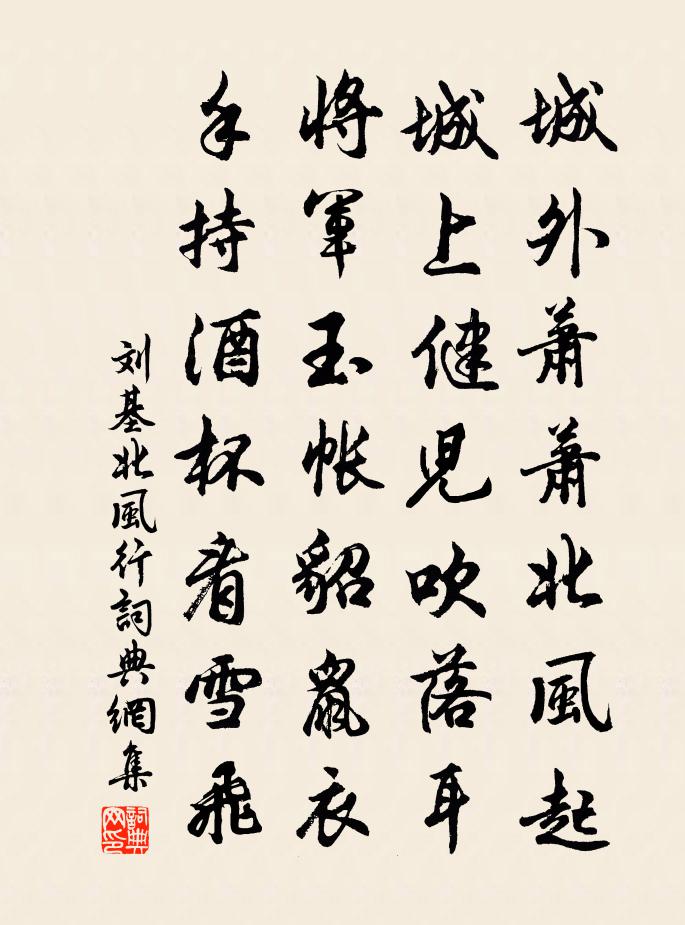 城外萧蕭北風起
城上健児吹落耳
將軍玉帳貂鼠衣
手持酒杯看雪飛
刘基北風行詞典網集
詞典网印